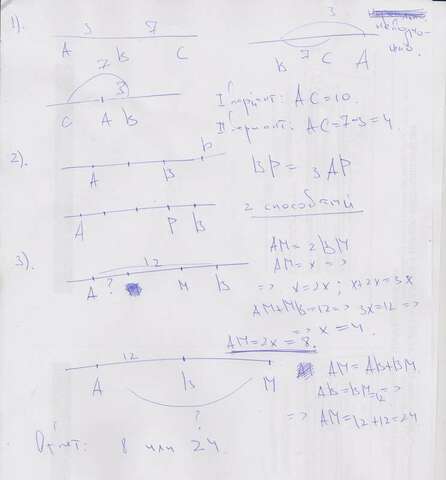 1).
3 7
A B C
3
B 7 C A
невозможно.
7
3
C A B
I вариант: AC=10.
II вариант: AC=7-3=4.
2).
A B P
BP = 3AP
A P B
2 способами
3).
12
A ? M B
AM=2BM
AM=x =>
=> x=2x; x+2x=3x
AM+MB=12=> 3x=12 =>
=> x=4.
AM=2x=8.
12
A B M
?
AM=AB+BM.
AB=BM=12 =>
=> AM=12+12=24
Ответ: 8 или 24.